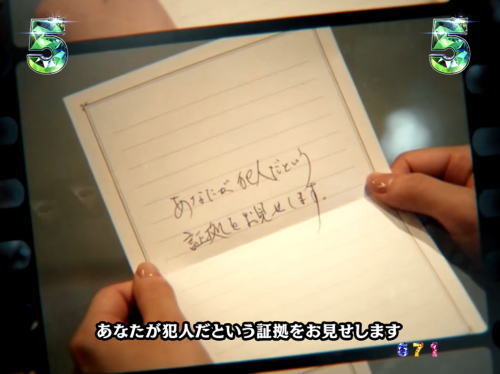 5
5
あなたが犯人だという
証拠をお見せします。
あなたが犯人だという証拠をお見せします
671